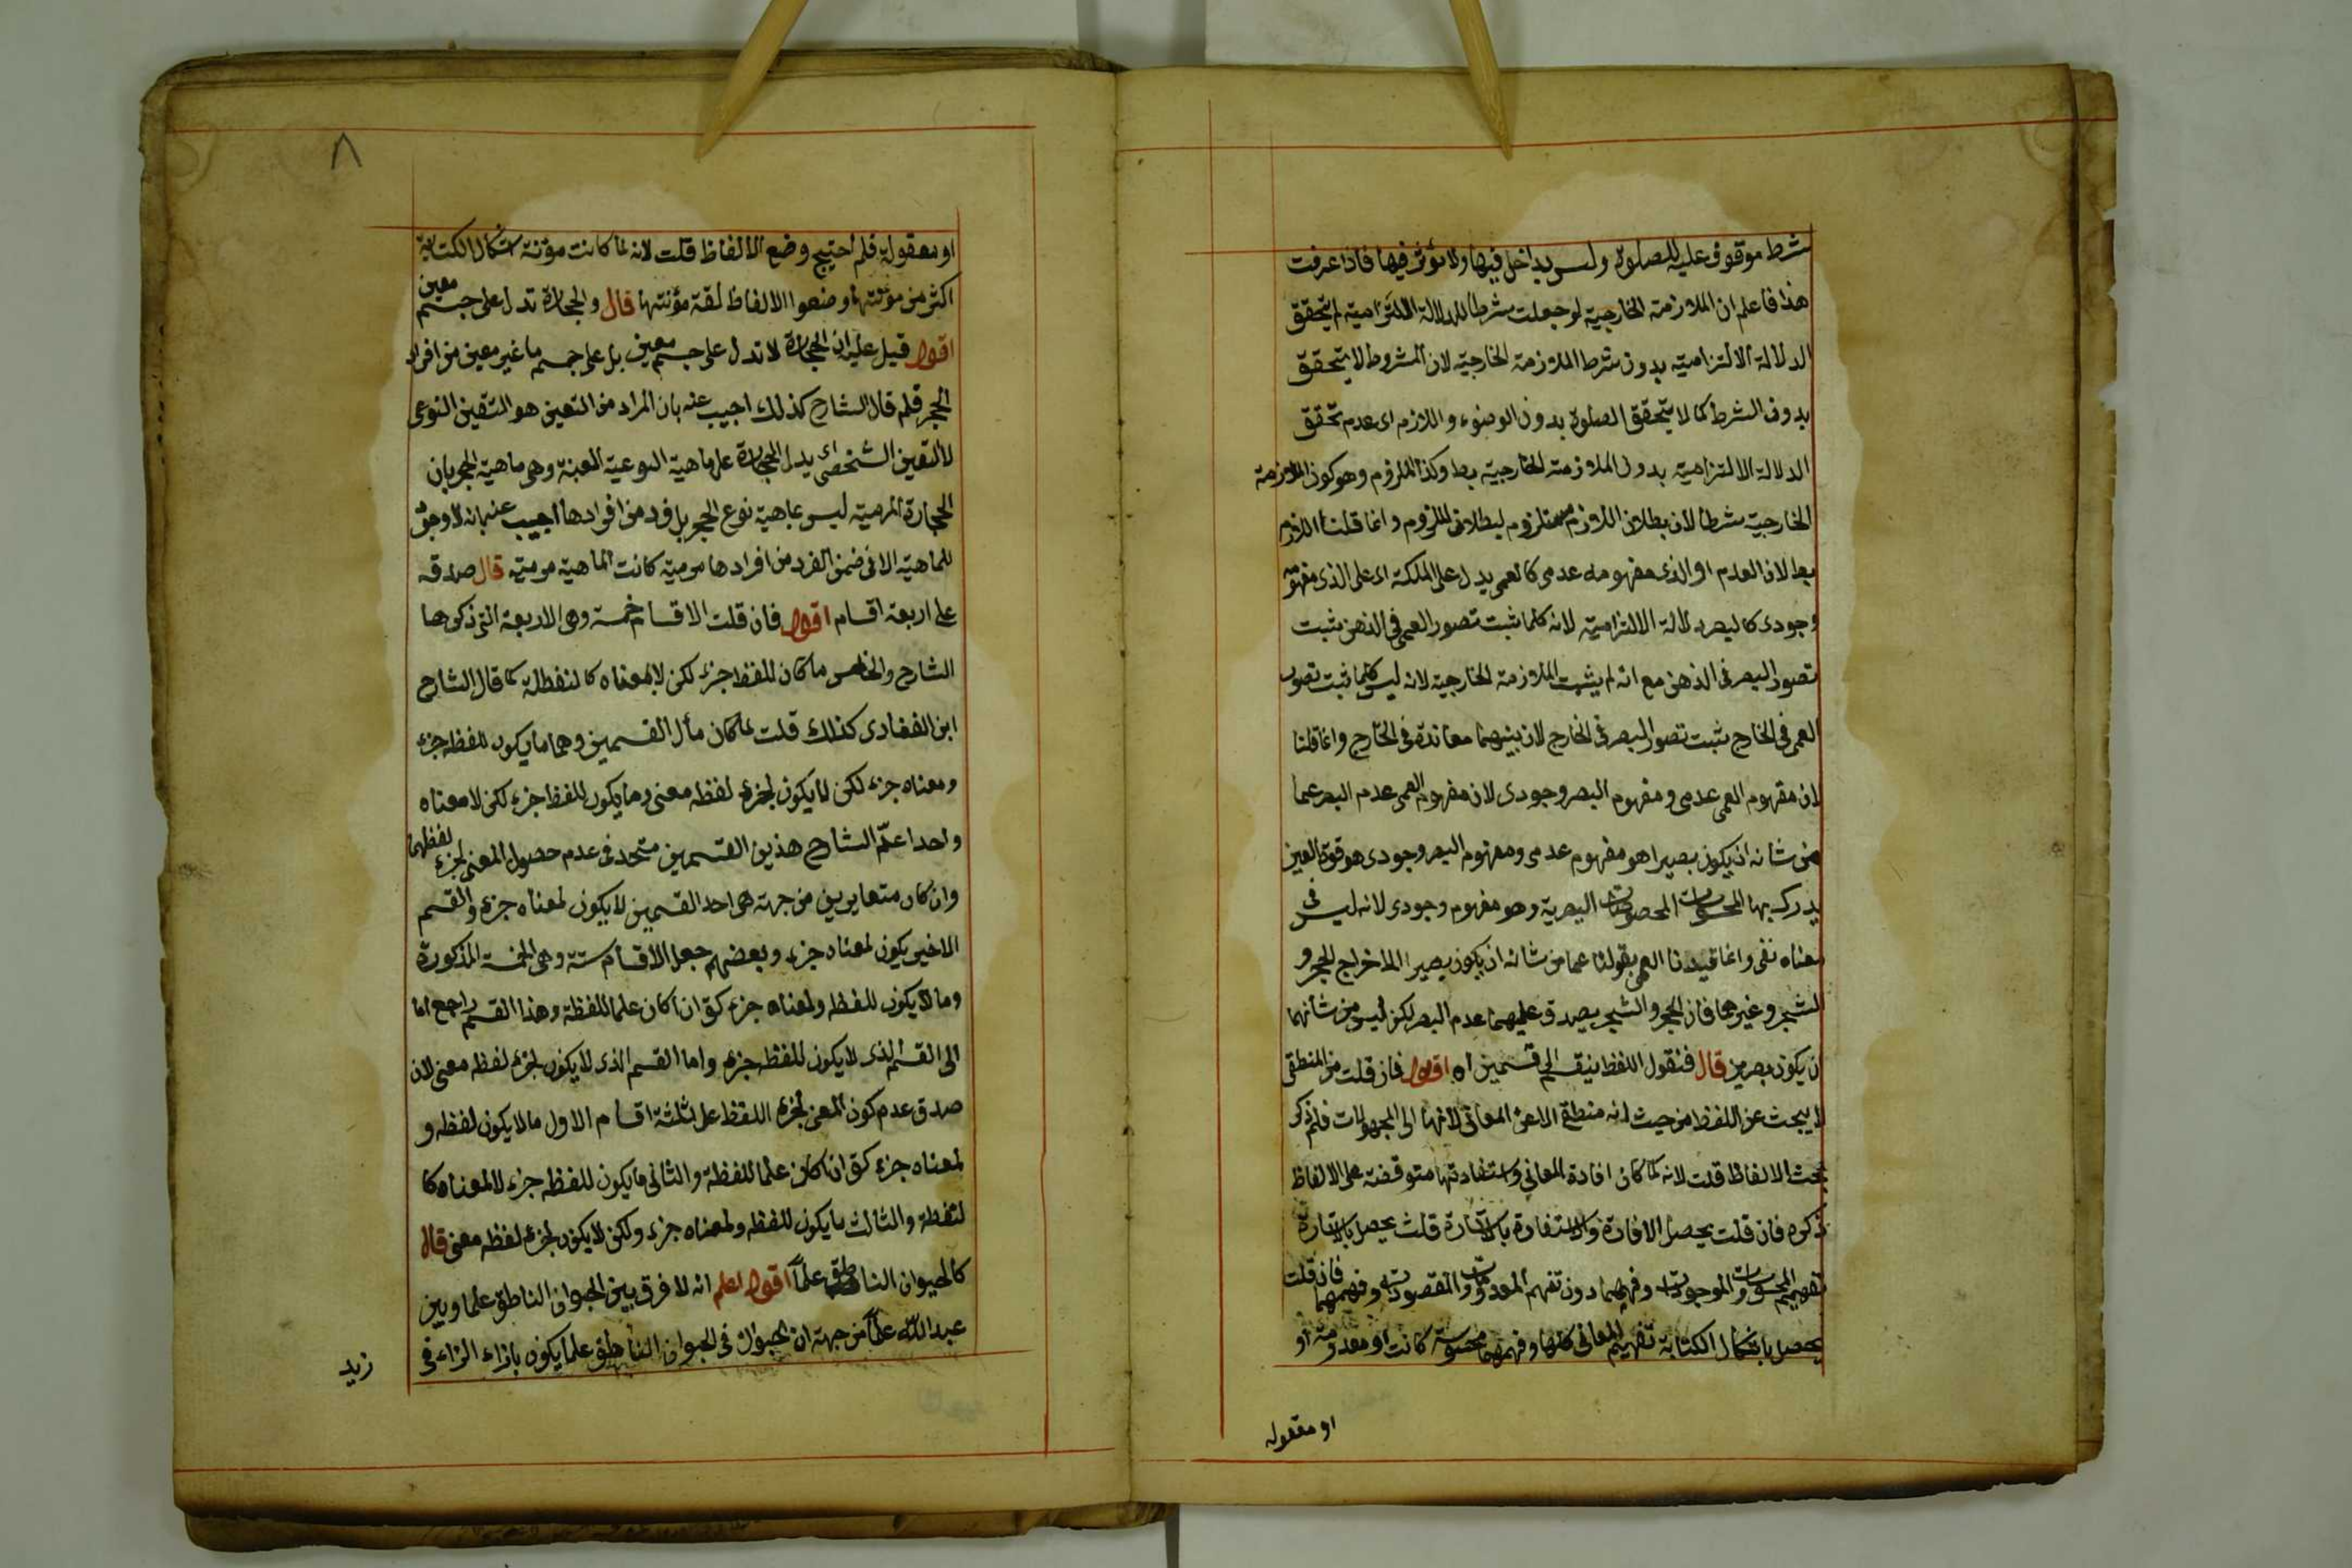 شرط موقوف عليه للصلوة وليس بداخل فيها ولا مؤثر فيها فاذا عرفت
هذا فاعلم ان الملازمة الخارجية لو جعلت شرطا للدلالة الالتزامية لم يتحقق
الدلالة الالتزامية بدون شرط الملازمة الخارجية لان المشروط لا يتحقق
بدون الشرط كما لا يتحقق الصلوة بدون الوضوء واللازم اى عدم تحقق
الدلالة الالتزامية بدون الملازمة الخارجية بط وكذا الملزوم وهو كون الملازمة
الخارجية شرطا لان بطلان اللازم مستلزم لبطلان الملزوم وانما قلنا اللازم
بط لان العدم او الذى مفهومه عدمى كالعمى يدل على الملكة اى على الذى مفهومه
وجودى كالبصر دلالة الالتزامية لانه كلما ثبت تصور العمى فى الذهن ثبت
تصور البصر فى الذهن مع انه لم يثبت الملازمة الخارجية لانه ليس كلما ثبت تصور
العمى فى الخارج ثبت تصور البصر فى الخارج لان بينهما معاندة فى الخارج وانما قلنا
لان مفهوم العمى عدمى ومفهوم البصر وجودى لان مفهوم العمى عدم البصر عما
من شانه ان يكون بصيرا هو مفهوم عدمى ومفهوم البصر وجودى هو قوة العين
يدرك بها المحسوسات البصرية وهو مفهوم وجودى لانه ليس فى
معناه نفى وانما قيدنا العمى بقولنا عما من شانه ان يكون بصيرا لاخراج الحجر و
الشجر وغيرهما فان الحجر والشجر يصدق عليهما عدم البصر لكن ليس من شانهما
ان يكون بصيرين قال فنقول اللفظ ينقسم الى قسمين اه اقول فان قلت من المنطقى
لا يبحث عن اللفظ من حيث انه منطقى الا عن المعانى لانها الى المجهولات فلم ذكر
بحث الالفاظ قلت لانه لما كان افادة المعانى واستفادتها متوقفة على الالفاظ
ذكره فان قلت يحصل الافادة والاستفادة بالاشارة قلت يحصل بالاشارة
تفهيم المحسوسات والموجودات وفهمهما دون تفهم المعدومات والمقصودات وفهمهما فان قلت
يحصل باشكال الكتابة تفهيم المعانى كلها وفهمها محسوسة كانت او معدومة او
او معقوله
٨
او معقولة فلم احتيج وضع الالفاظ قلت لانه لما كانت مؤنة اشكال الكتابة
اكثر من مؤنتها وضعوا الالفاظ لقة مؤنتها قال والحجارة تدل على جسم معين
اقول قيل عليه ان الحجارة لا تدل على جسم معين بل على جسم ما غير معين من افراد
الحجر فلم قال الشارح كذلك اجيب عنه بان المراد من التعين هو التعين النوعى
لا التعين الشخصى اى يدل الحجارة على ماهية النوعية المعينة وهى ماهية الحجر بان
الحجارة المرمية ليس بماهية نوع الحجر بل فرد من افرادها اجيب عنه بانه لا وجود
للماهية الا فى ضمن الفرد من افرادها مرمية كانت الماهية مرمية قال صدقه
على اربعة اقسام اقول فان قلت الاقسام خمسة وهى الاربعة التى ذكرها
الشارح والخامس ما كان للفظ جزء لكن لا لمعناه كالنقطة كما قال الشارح
ابن الفنادى كذلك قلت لما كان مأل القسمين وهما ما يكون للفظه جزء
ومعناه جزء لكن لا يكون لجزء لفظه معنى وما يكون للفظ جزء لكن لا معناه
واحدا علّم الشارح هذين القسمين متحد فى عدم حصول المعنى لجزء لفظهما
وان كان متغايرين من جهة هى احد القسمين لا يكون لمعناه جزء والقسم
الاخير يكون لمعناه جزء وبعضهم جعل الاقسام ستة وهى الخمسة المذكورة
وما لا يكون للفظه ولمعناه جزء كق ان كان علما للنقطة وهذا القسم راجع اما
الى القسم الذى لا يكون للفظ جزء واما القسم الذى لا يكون لجزء لفظه معنى لان
صدق عدم كون المعنى لجزء اللفظ على ثلثة اقسام الاول ما لا يكون لفظه و
لمعناه جزء كق ان كان علما للنقطة والثانى ما يكون للفظه جزء لا لمعناه كا
لنقطة والثالث ما يكون للفظه ولمعناه جزء ولكن لا يكون لجزء لفظه معنى قال
كالحيوان الناطق علماً اقول اعلم انه لا فرق بين الحيوان الناطق علما وبين
عبد اللّه علماً من جهة ان الحيوان فى الحيوان الناطق علما يكون بازاء الزاء فى
زيد